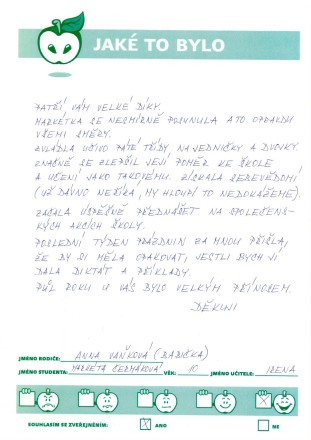 JAKÉ TO BYLO
PATŘÍ VÁM VELKÉ DÍKY.
MARKÉTKA SE NESMÍRNĚ POSUNULA A TO OPRAVDU
VŠEMI SMĚRY.
ZVLÁDLA UČIVO PÁTÉ TŘÍDY NA JEDNIČKY A DVOJKY.
ZNAČNĚ SE ZLEPŠIL JEJÍ POMĚR KE ŠKOLE
A UČENÍ JAKO TAKOVÉMU. ZÍSKALA SEBEVĚDOMÍ
(UŽ DÁVNO NEŘÍKÁ, MY HLOUPÍ TO NEDOKÁŽEME).
ZAČALA ÚSPĚŠNĚ PŘEDNÁŠET NA SPOLEČENS-
KÝCH AKCÍCH ŠKOLY.
POSLEDNÍ TÝDEN PRÁZDNIN ZA MNOU PŘIŠLA,
ŽE BY SI MĚLA OPAKOVAT, JESTLI BYCH JÍ
DALA DIKTÁT A PŘÍKLADY.
PŮL ROKU U VÁS BYLO VELKÝM PŘÍNOSEM.
DĚKUJI
JMÉNO RODIČE: ANNA VAŇKOVÁ (BABIČKA)
JMÉNO STUDENTA: MARKÉTA ČERMÁKOVÁ VĚK: 10 JMÉNO UČITELE: IRENA
X
SOUHLASÍM SE ZVEŘEJNĚNÍM: X ANO NE